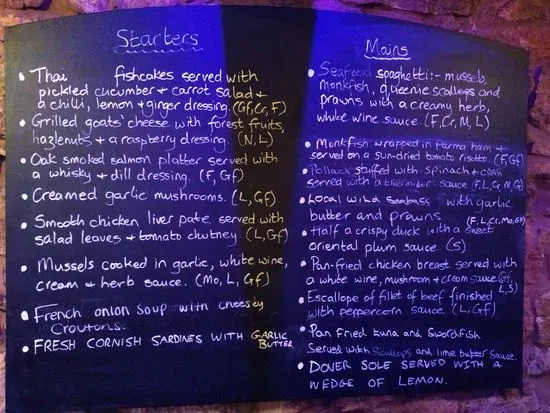 Starters
• Thai fishcakes served with
pickled cucumber + carrot salad +
a chilli, lemon + ginger dressing. (Gf, Cr, F)
• Grilled goats' cheese with forest fruits,
hazlenuts + a raspberry dressing. (N, L)
• Oak smoked salmon platter served with
a whisky + dill dressing. (F, Gf)
• Creamed garlic mushrooms. (L, Gf)
• Smooth chicken liver pate served with
salad leaves + tomato chutney (L, Gf)
• Mussels cooked in garlic, white wine,
cream + herb sauce. (Mo, L, Gf)
• French onion soup with cheesy
Croutons.
• FRESH CORNISH SARDINES WITH GARLIC
BUTTER
Mains
• Seafood spaghetti:- mussels,
monkfish, queenie scallops and
prawns with a creamy herb,
white wine sauce. (F, Cr, M, L)
• Monkfish wrapped in Parma ham +
served on a sun-dried tomato risotto. (F, Gf)
• Pollack stuffed with spinach + crab
served with a thermidor sauce (F, L,
• Local wild seabass with garlic
butter and prawns. (F, L, Cr, Mo, GF)
• Half a crispy duck with a sweet
oriental plum sauce. (S)
• Pan-fried chicken breast served with
a white wine, mushroom + cream sauce (Gf,
L, S)
• Escallope of fillet of beef finished
with peppercorn sauce. (L, Gf)
• Pan Fried tuna and Swordfish
Served with Scallops and lime butter Sauce.
• DOVER SOLE SERVED WITH A
WEDGE OF LEMON.